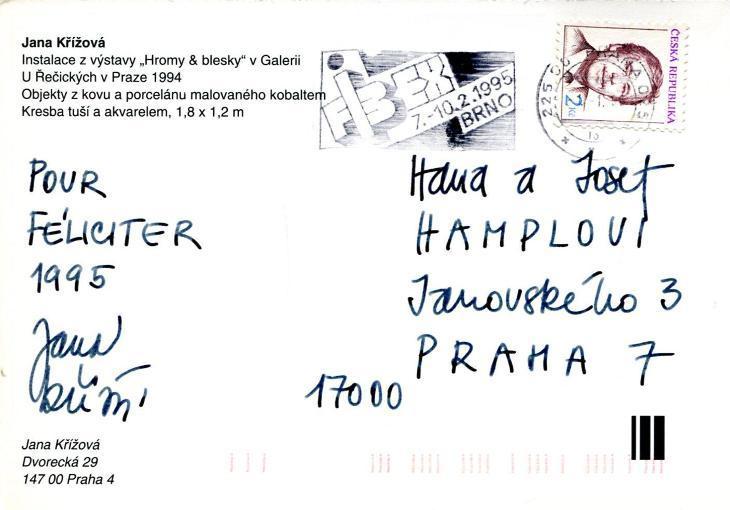 Jana Křížová
Instalace z výstavy „Hromy & blesky“ v Galerii
U Řečických v Praze 1994
Objekty z kovu a porcelánu malovaného kobaltem
Kresba tuší a akvarelem, 1,8 x 1,2 m
7.-10.2.1995
BRNO
ČESKÁ REPUBLIKA
2 Kč
POUR
FÉLICITER
1995
Jana
Hana a Josef
HAMPLOVI
Janovského 3
PRAHA 7
17000
Jana Křížová
Dvorecká 29
147 00 Praha 4